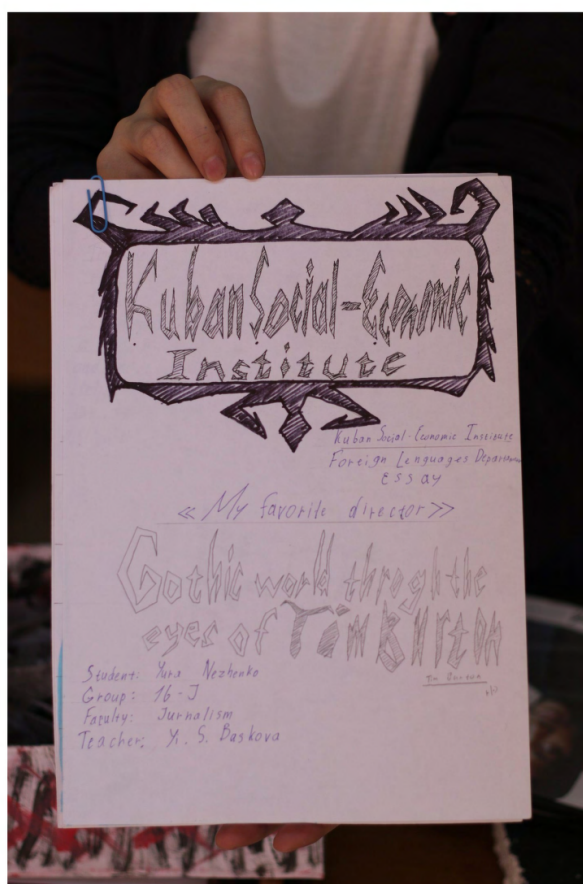 Kuban Social-Economic
Institute
Kuban Social-Economic Institute
Foreign Lenguages Departmen
Essay
<< My favorite director>>
Gothic world throgh the
eyes of Tim Burton
Student: Yura Nezhenko
Group: 16-J
Faculty: Jurnalism
Teacher: Y. S. Baskova